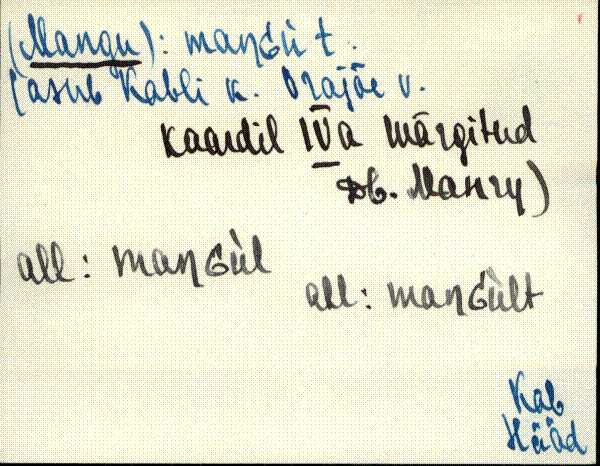 (Mangu): maŋGù t.
(asub Kabli k. Orajõe v.
kaardil IVa märgitud
Db. Manry)
all: maŋGùl
all: maŋGùlt
Kab
Hääd